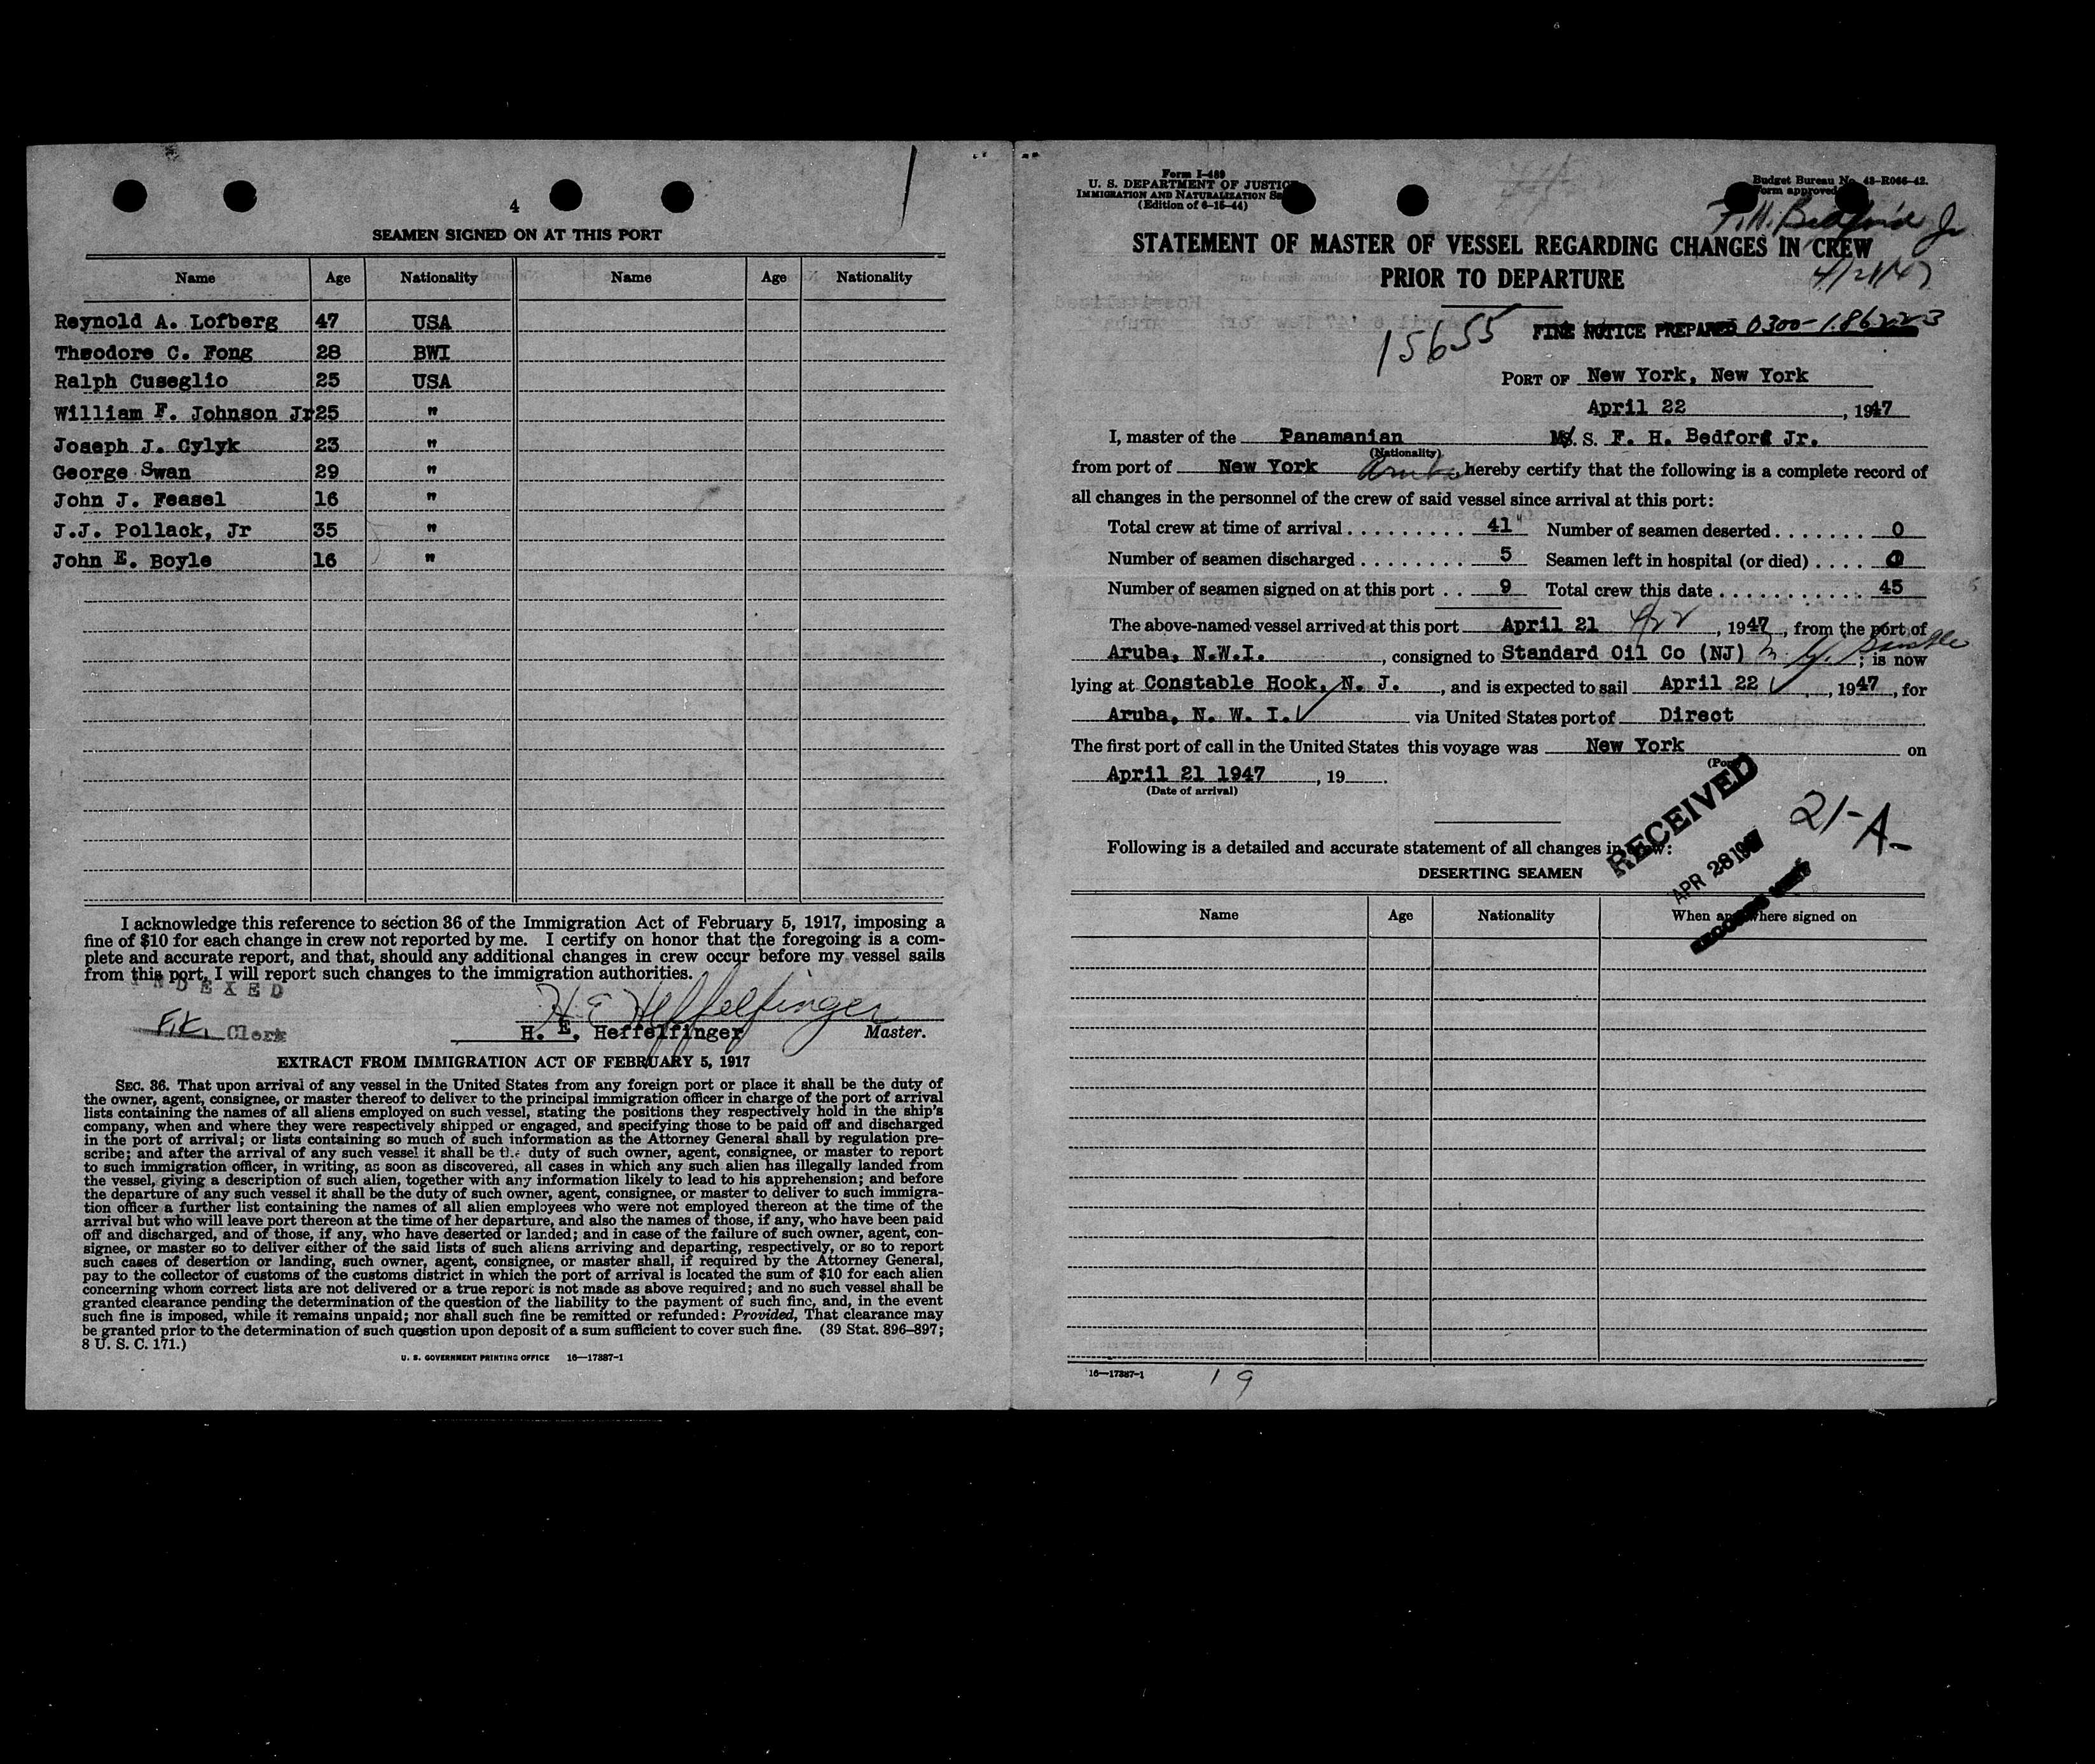 4
SEAMEN SIGNED ON AT THIS PORT
Name Age Nationality Name Age Nationality
Reynold A. Lofberg 47 USA
Theodore C. Fong 28 BWI
Ralph Cuseglio 25 USA
William F. Johnson Jr 25 "
Joseph J. Cylyk 23 "
George Swan 29 "
John J. Feasel 16 "
J.J. Pollack, Jr 35 "
John E. Boyle 16 "
I acknowledge this reference to section 36 of the Immigration Act of February 5, 1917, imposing a
fine of $10 for each change in crew not reported by me. I certify on honor that the foregoing is a com-
plete and accurate report, and that, should any additional changes in crew occur before my vessel sails
from this port, I will report such changes to the immigration authorities.
INDEXED
H E Heffelfinger
F.K. Clerk
H. E. Heffelfinger Master.
EXTRACT FROM IMMIGRATION ACT OF FEBRUARY 5, 1917
SEC. 36. That upon arrival of any vessel in the United States from any foreign port or place it shall be the duty of
the owner, agent, consignee, or master thereof to deliver to the principal immigration officer in charge of the port of arrival
lists containing the names of all aliens employed on such vessel, stating the positions they respectively hold in the ship's
company, when and where they were respectively shipped or engaged, and specifying those to be paid off and discharged
in the port of arrival; or lists containing so much of such information as the Attorney General shall by regulation pre-
scribe; and after the arrival of any such vessel it shall be the duty of such owner, agent, consignee, or master to report
to such immigration officer, in writing, as soon as discovered, all cases in which any such alien has illegally landed from
the vessel, giving a description of such alien, together with any information likely to lead to his apprehension; and before
the departure of any such vessel it shall be the duty of such owner, agent, consignee, or master to deliver to such immigra-
tion officer a further list containing the names of all alien employees who were not employed thereon at the time of the
arrival but who will leave port thereon at the time of her departure, and also the names of those, if any, who have been paid
off and discharged, and of those, if any, who have deserted or landed; and in case of the failure of such owner, agent, con-
signee, or master so to deliver either of the said lists of such aliens arriving and departing, respectively, or so to report
such cases of desertion or landing, such owner, agent, consignee, or master shall, if required by the Attorney General,
pay to the collector of customs of the customs district in which the port of arrival is located the sum of $10 for each alien
concerning whom correct lists are not delivered or a true report is not made as above required; and no such vessel shall be
granted clearance pending the determination of the question of the liability to the payment of such fine, and, in the event
such fine is imposed, while it remains unpaid; nor shall such fine be remitted or refunded: Provided, That clearance may
be granted prior to the determination of such question upon deposit of a sum sufficient to cover such fine. (39 Stat. 896–897;
8 U. S. C. 171.)
U. S. GOVERNMENT PRINTING OFFICE 16—17387-1
Form I-489
U. S. DEPARTMENT OF JUSTICE
IMMIGRATION AND NATURALIZATION
(Edition of 6-15-44)
Budget Bureau No. 43-R066-42.
Form approved
F. H. Bedford Jr
STATEMENT OF MASTER OF VESSEL REGARDING CHANGES IN CREW
PRIOR TO DEPARTURE
4/21/47
15655
FINE NOTICE PREPARED 0300-186223
PORT OF New York, New York
April 22, 1947
I, master of the Panamanian M. S. F. H. Bedford Jr.
(Nationality)
from port of New York Aruba, hereby certify that the following is a complete record of
all changes in the personnel of the crew of said vessel since arrival at this port:
Total crew at time of arrival 41 Number of seamen deserted 0
Number of seamen discharged 5 Seamen left in hospital (or died) 0
Number of seamen signed on at this port 9 Total crew this date 45
The above-named vessel arrived at this port April 21, 1947, from the port of
Aruba, N.W.I., consigned to Standard Oil Co (NJ); is now
lying at Constable Hook, N. J., and is expected to sail April 22, 1947, for
Aruba, N. W. I. via United States port of Direct
The first port of call in the United States this voyage was New York on
April 21 1947, 19
(Date of arrival)
RECEIVED
APR 28 1947
21-A-
Following is a detailed and accurate statement of all changes in crew:
DESERTING SEAMEN
Name Age Nationality When and where signed on
16—17387-1
19